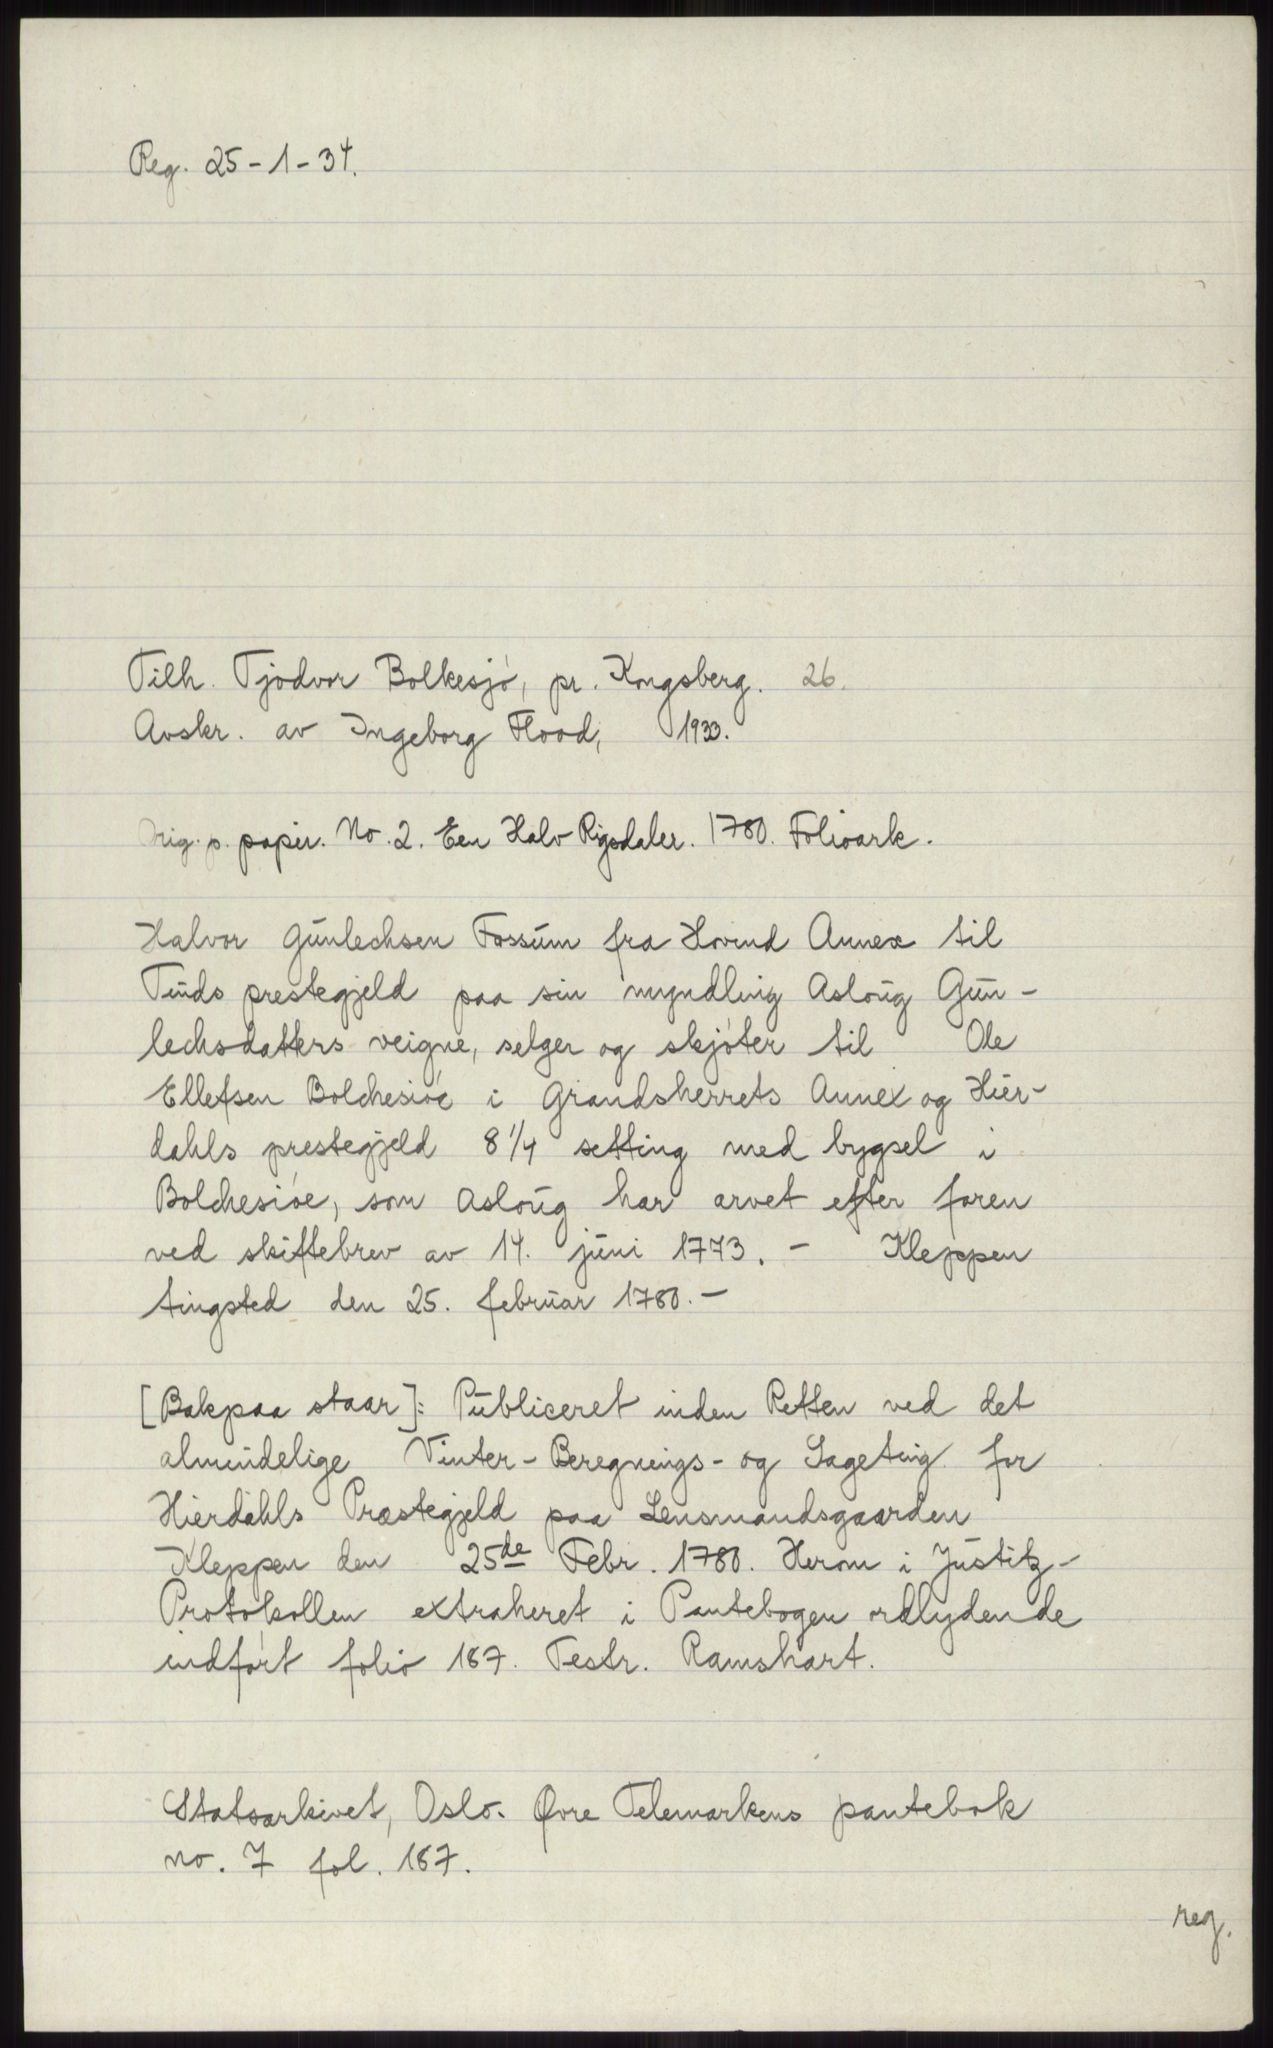 Reg. 25-1-34.
Tilh. Tjodvor Bolkesjó, pr. Kongsberg. 26.
Avskr. av Ingeborg Flood, 1933.
Orig. p. papir. No. 2. Een Halv Rigsdaler. 1780. Folioark.
Halvor Gunlechsen Fossum fra Hovind Annex til
Tinds prestegjeld paa sin myndling Asloug Gun-
lechsdatters veigne, selger og skjóter til Ole
Ellefsen Bolchesióe i Grandsherrets Annex og Hier-
dahls prestegjeld 8 1/4 setting med bygsel i
Bolchesióe, som Asloug har arvet efter faren
ved skiftebrev av 14. juni 1773. - Kleppen
tingsted den 25. februar 1780. -
[Bakpaa staar]: Publiceret inden Retten ved det
almindelige Vinter-Beregnings- og Sageting for
Hierdahls Præstegjeld paa Lensmandsgaarden
Kleppen den 25de Febr. 1780. Herom i Justitz-
Protokollen extraheret i Pantebogen ordlydende
indfórt folio 187. Testr. Ramshart.
Statsarkivet, Oslo. Øvre Telemarkens pantebok
no. 7 fol. 187.
reg.